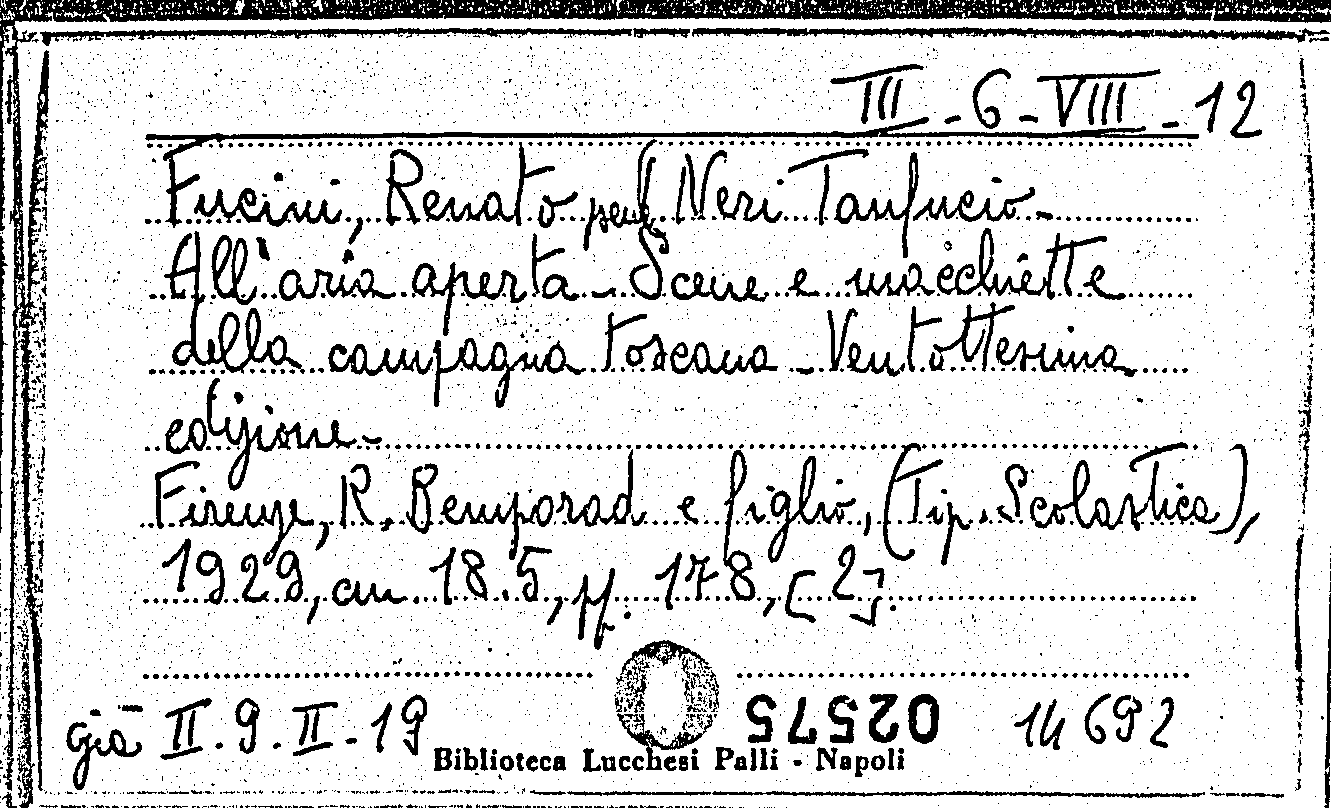 III-6-VIII-12
Fucini, Renato pseud. Neri Tanfucio-
All'aria aperta - Scene e macchiette
della campagna toscana - Ventottesima
edizione-
Firenze, R. Bemporad e figlio, (Tip. Scolastica),
1929, cm. 18.5, pp. 178, [2].
già II.9.II-19 02575 14692
Biblioteca Lucchesi Palli - Napoli